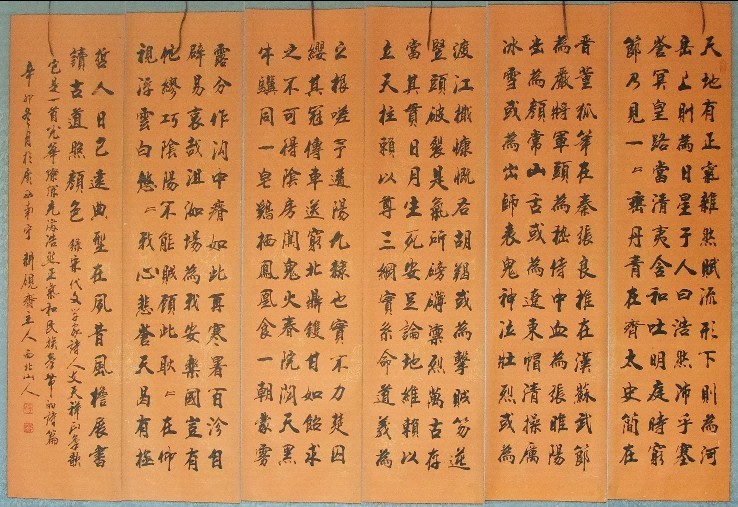 天地有正氣雜然賦流形下則為河
岳上則為日星于人曰浩然沛乎塞
蒼冥皇路當清夷含和吐明庭時窮
節乃見一〻垂丹青在齊太史簡在
晉董狐筆在秦張良椎在漢蘇武節
為嚴將軍頭為嵇侍中血為張睢陽
齒為顏常山舌或為遼東帽清操厲
冰雪或為出師表鬼神泣壯烈或為
渡江楫慷慨吞胡羯或為擊賊笏逆
豎頭破裂是氣所磅礴凜烈萬古存
當其貫日月生死安足論地維賴以
立天柱賴以尊三綱實系命道義為
之根嗟予遘陽九隸也實不力楚囚
纓其冠傳車送窮北鼎鑊甘如飴求
之不可得陰房闃鬼火春院閟天黑
牛驥同一皂鷄栖鳳凰食一朝蒙霧
露分作沟中瘠如此再寒暑百沴自
辟易哀哉沮洳場為我安樂國豈有
他繆巧陰陽不能賊顧此耿〻在仰
視浮雲白悠〻我心悲蒼天曷有極
哲人日已遠典型在夙昔風檐展書
讀古道照顏色 錄宋代文學家詩人文天祥正氣歌
它是一首光華燦爛充滿浩然正氣和民族氣節的詩篇
辛卯冬月於廣西南寧 耕硯齋主人西北山人